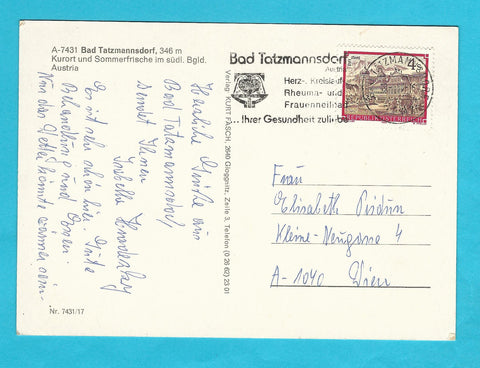 A-7431 Bad Tatzmannsdorf, 346 m
Kurort und Sommerfrische im südl. Bgld.
Austria
Herzliche Grüße aus
Bad Tatzmannsdorf
sendet Ihnen
Es ist sehr schön hier. Gute
Behandlung und
Nur das Wetter könnte wärmer sein.
Nr. 7431/17
Verlag KURT FASCH, 2640 Gloggnitz, Zeile 3, Telefon (0 26 62) 23 01
Bad Tatzmannsdorf
Austria
Herz-, Kreislauf
Rheuma- und
Frauenheilbad
... Ihrer Gesundheit zuliebe
REPUBLIK ÖSTERREICH
Frau
Elisabeth
Kleine-Neugasse 4
A-1040 Wien